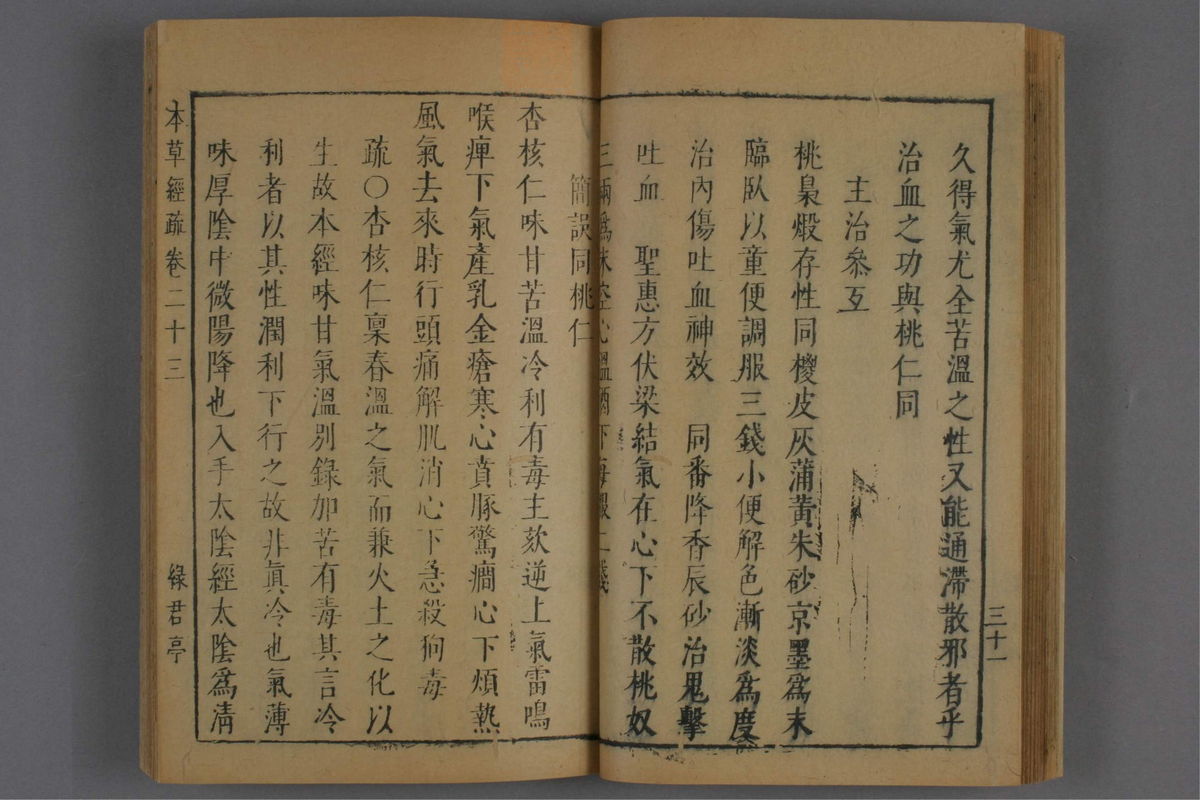 久得氣尤全苦溫之性又能通滯散邪者乎
治血之功與桃仁同
主治叅互
桃梟煅存性同椶皮灰蒲黃朱砂京墨爲末
臨臥以童便調服三錢小便解色漸淡爲度
治內傷吐血神效　同番降香辰砂治鬼擊
吐血　聖惠方伏梁結氣在心下不散桃奴
三兩爲末空心溫酒下每服二錢
簡誤同桃仁
杏核仁味甘苦溫冷利有毒主欬逆上氣雷鳴
喉痺下氣產乳金瘡寒心賁豚驚癇心下煩熱
風氣去來時行頭痛解肌消心下急殺狗毒
疏〇杏核仁稟春溫之氣而兼火土之化以
生故本經味甘氣溫別錄加苦有毒其言冷
利者以其性潤利下行之故非眞冷也氣薄
味厚陰中微陽降也入手太陰經太陰爲清
三十一
本草經疏卷二十三
綠君亭